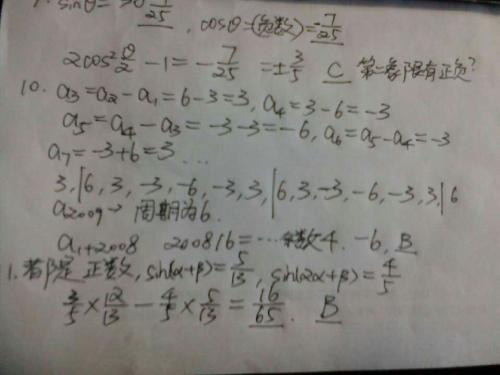 sinθ= 7/25, cosθ=(负数)=-7/25
2cos²θ/2-1=-7/25 =±3/5 C 第一象限有正负?
10. a₃=a₂-a₁=6-3=3, a₄=3-6=-3
a₅=a₄-a₃=-3-3=-6, a₆=a₅-a₄=-3
a₇=-3+6=3 ...
3,|6,3,-3,-6,-3,3,|6,3,-3,-6,-3,3,|6
a₂₀₀₉→周期为6.
a₁₊₂₀₀₈ 2008/6=…余数4. -6, B
1.若β是正数, sin(α+β)=5/13, sin(2α+β)=4/5
3/5×12/13-4/5×5/13=16/65. B